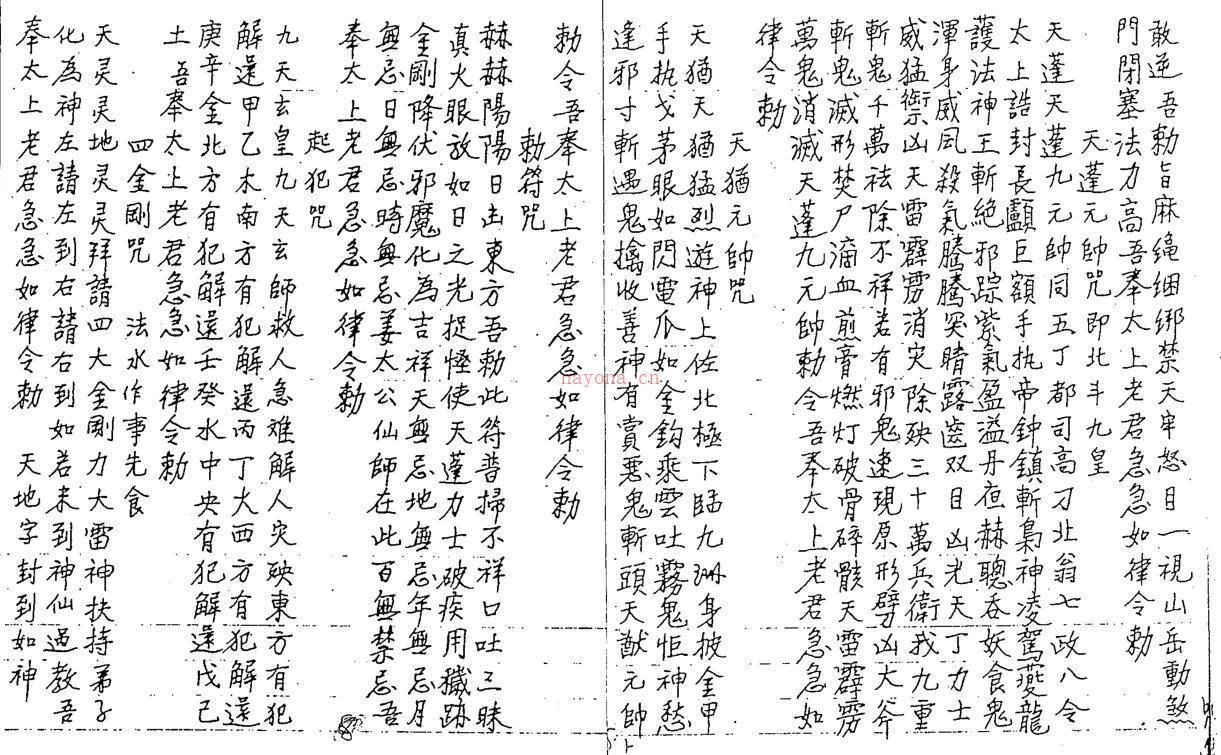 敢逆吾勅旨麻绳綑绑禁天牢怒目一視山岳動煞
門閉塞法力高吾奉太上老君急急如律令勅
天蓬元帥咒即北斗九皇
天蓬天蓬九元帥同五丁都司高刁北翁七政八令
太上誥封長顱巨額手执帝钟鎮斬梟神凌駕夔龍
護法神王斬絕邪踪紫氣盈溢丹夜赫聰吞妖食鬼
渾身威風殺氣騰騰突睛露齒双目凶光天丁力士
威猛禦凶天雷霹雳消灾除殃三十萬兵衛我九重
斬鬼千萬祛除不祥若有邪鬼速現原形劈凶大斧
斬鬼滅形焚尸滴血煎膏燃灯破骨碎骸天雷霹雳
萬鬼消滅天蓬九元帥勅令吾奉太上老君急急如
律令勅
天猶元帥咒
天猶天猶猛烈遊神上佐北極下臨九洲身披金甲
手执戈茅眼如閃電爪如金鈎乘雲吐霧鬼怇神愁
逢邪寸斬遇鬼擒收善神有賞惡鬼斬頭天猷元帥
勅令吾奉太上老君急急如律令勅
勅符咒
赫赫陽陽日出東方吾勅此符普掃不祥口吐三昧
真火眼放如日之光捉怪使天蓬力士破疾用穢跡
金剛降伏邪魔化為吉祥天無忌地無忌年無忌月
無忌日無忌時無忌姜太公仙師在此百無禁忌吾
奉太上老君急急如律令勅
起犯咒
九天玄皇九天玄師救人急难解人灾殃東方有犯
解还甲乙木南方有犯解还丙丁火西方有犯解还
庚辛金北方有犯解还壬癸水中央有犯解还戊己
土吾奉太上老君急急如律令勅
四金剛咒 法水作事先食
天灵灵地灵灵拜請四大金剛力大雷神扶持弟子
化為神左請左到右請右到如若未到神仙過教吾
奉太上老君急急如律令勅 天地字封到如神
nayona.cn